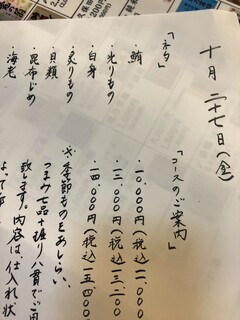 十月二十七日(金)
「コースのご案内」
・一〇、〇〇〇円(税込一一、〇〇〇
・一二、〇〇〇円(税込一三、二〇〇
・一四、〇〇〇円(税込一五四〇〇
※季節ものをあしらい、
つまみ七品+握り八貫でご用
致します。内容は、仕入れ状
「ネタ」
・鮪
・光りもの
・白身
・炙りもの
・貝類
・昆布じめ
・海老